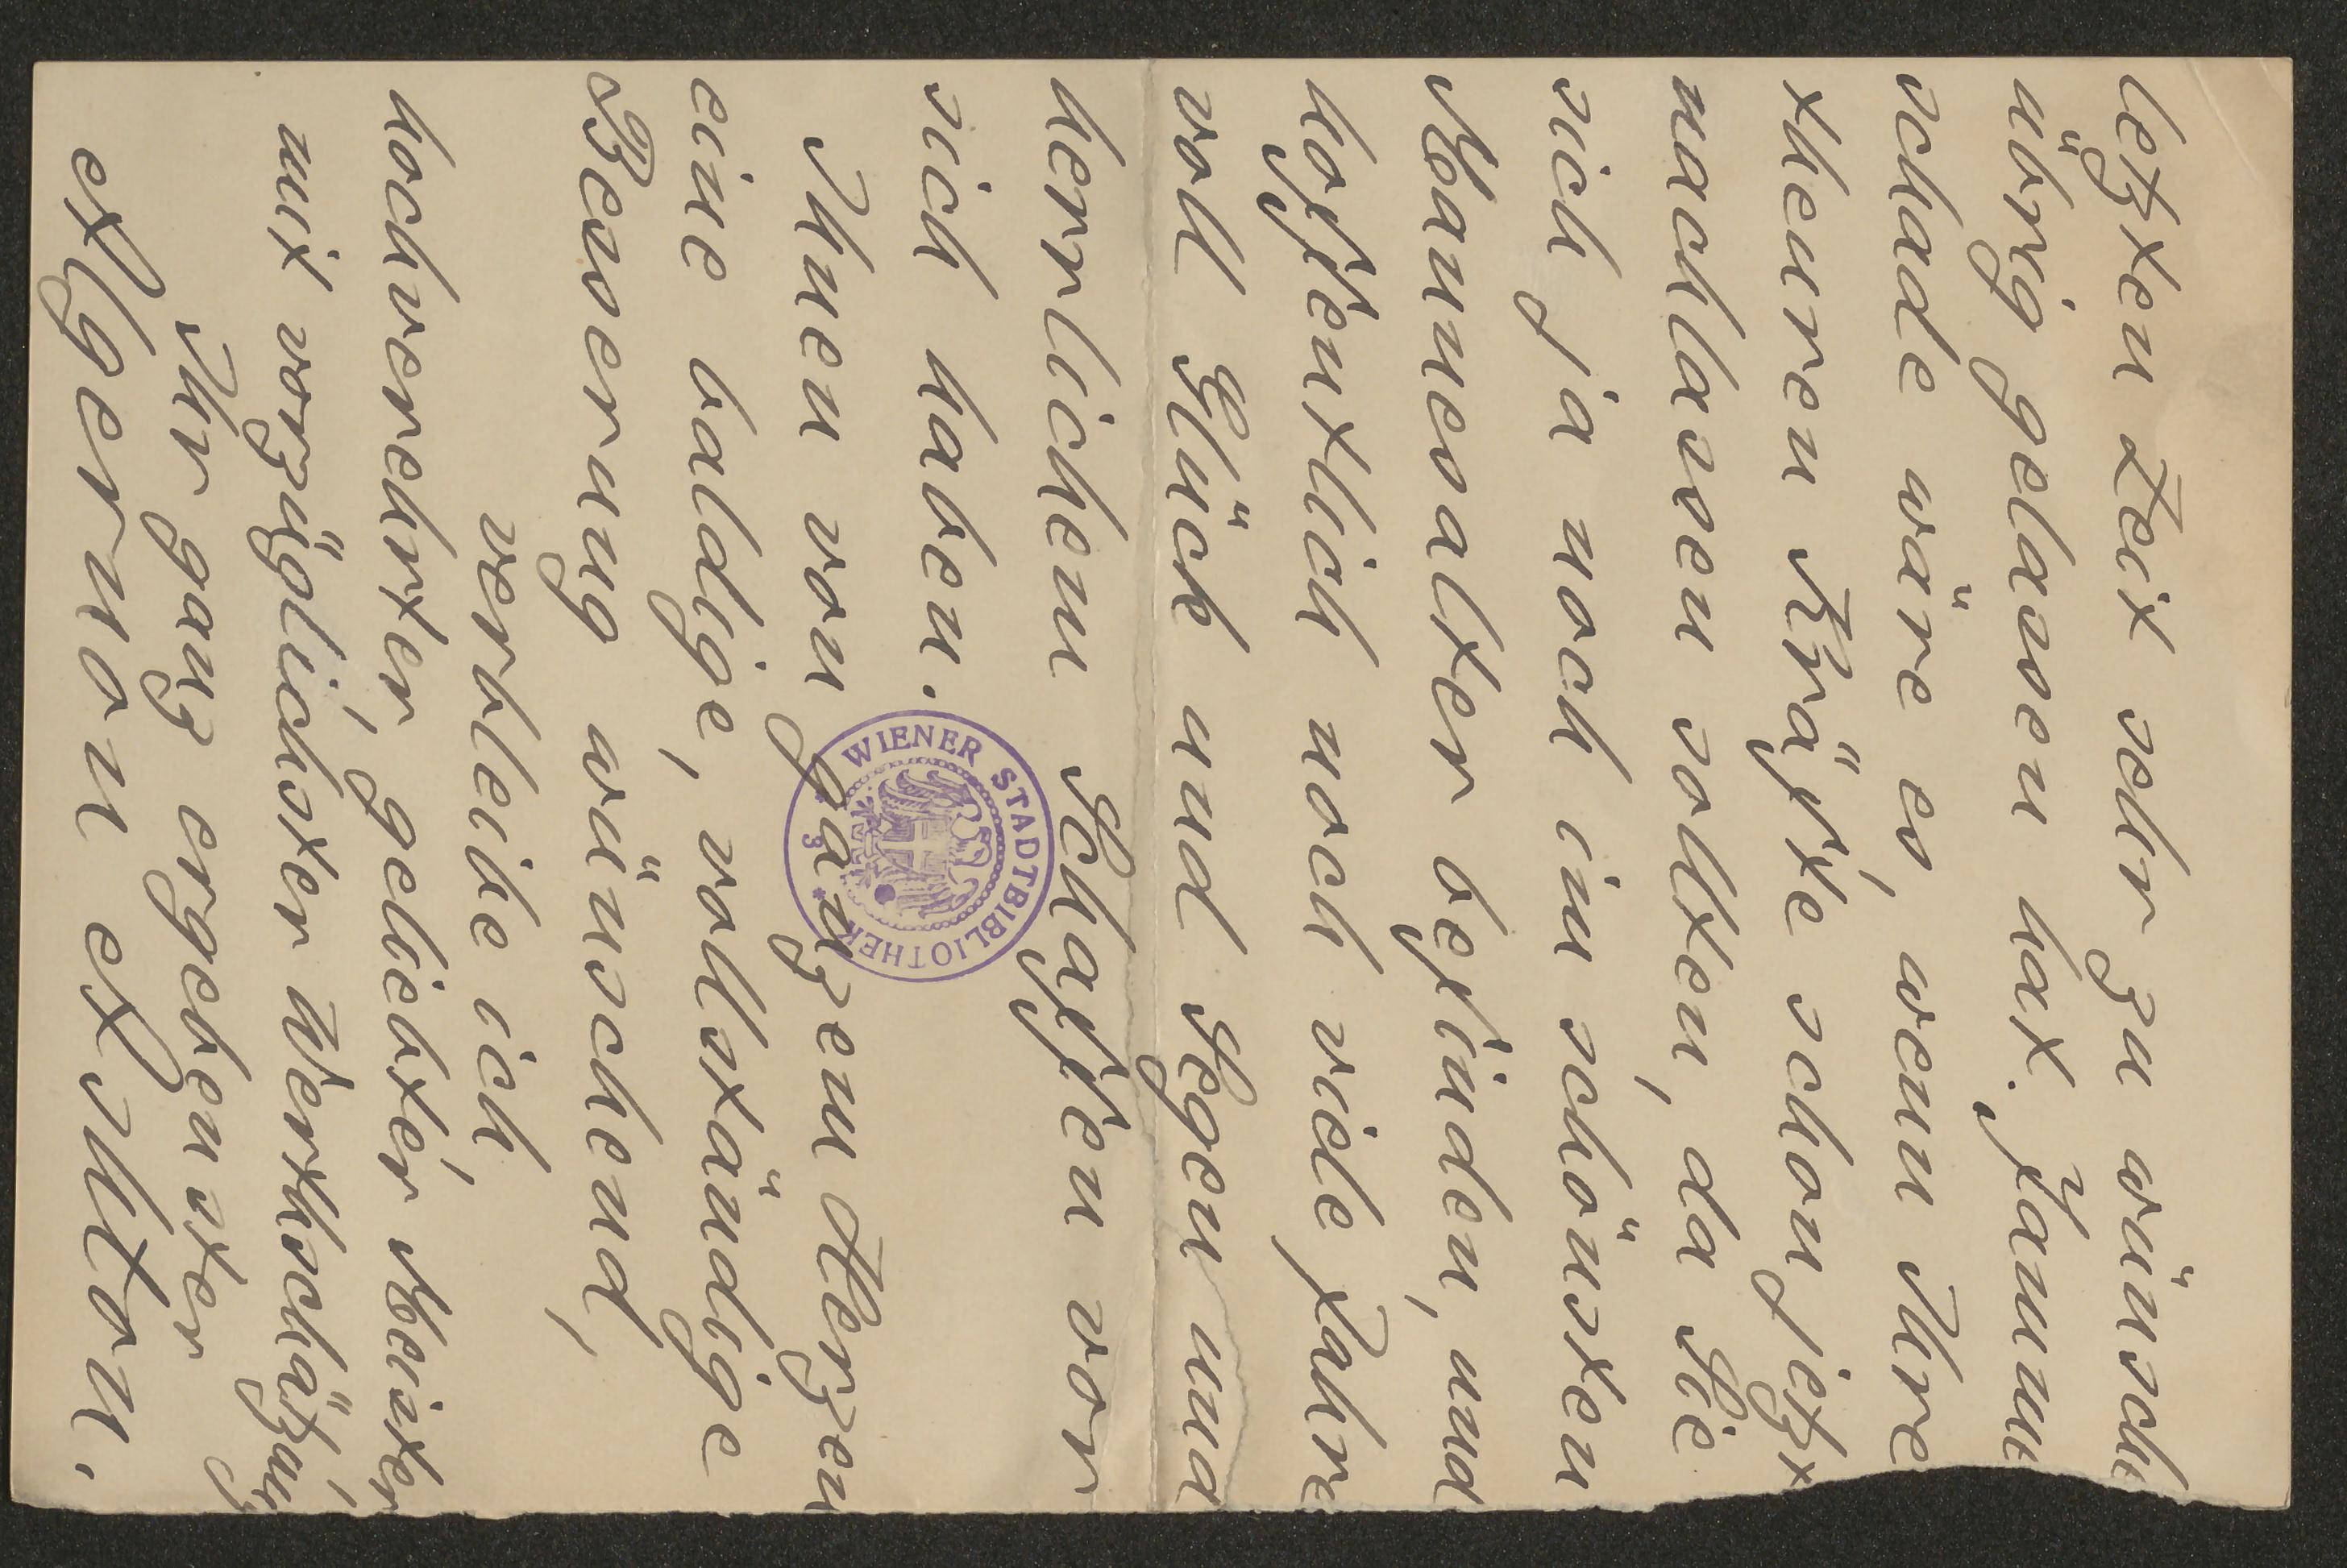 letzten Zeit sehr zu wünsche
übrig gelassen hat. Jamme
schade wäre es, wenn Ihre
theuren Kräfte schon jetzt
nachlassen sollten, da Sie
sich ja noch im schönsten
Mannesalter befinden, und
hoffentlich noch viele Jahre
voll Glück und Segen und
herrlichem Schaffen vor
sich haben.
Ihnen von ganzem Herzen
eine baldige, vollständige
Besserung wünschend,
verbleibe ich,
hochverehrter, geliebter Meister,
mit vorzüglichster Werthschätzung,
Ihr ganz ergebenster
Algernon Ashton.
WIENER STADTBIBLIOTHEK